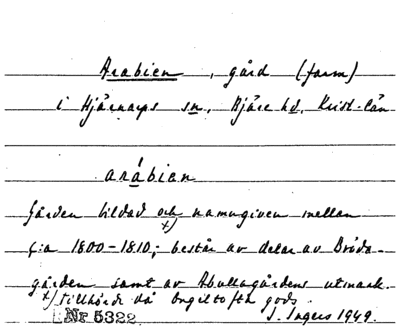 Arabien, gård (farm)
i Hjärnarps sn, Bjäre hd, Krist-län
arábien
Gården bildad och x) namngiven mellan
c:a 1800-1810; består av delar av Bröda-
gården samt av Abullagårdens utmark.
x) tillhörde då Ängeltofta gods
Nr 5322 J. Ingers 1949.